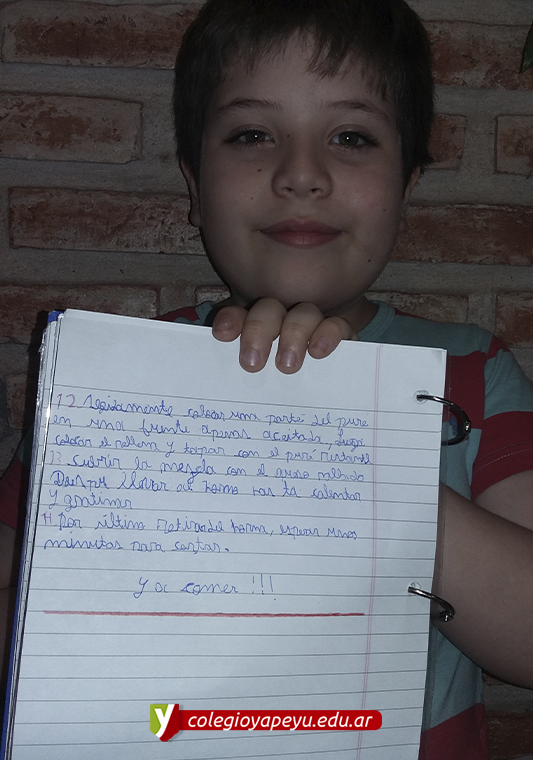 12. Seguidamente colocar una parte del pure
en una fuente apenas aceitada, luego
colocar el relleno y tapar con el puré restante
13. Cubrir la mezcla con el queso rallado
Después llevar al horno hasta calentar
y gratinar
14 por último retirar del horno, esperar unos
minutos para cortar.
y a comer!!!
y colegioyapeyu.edu.ar